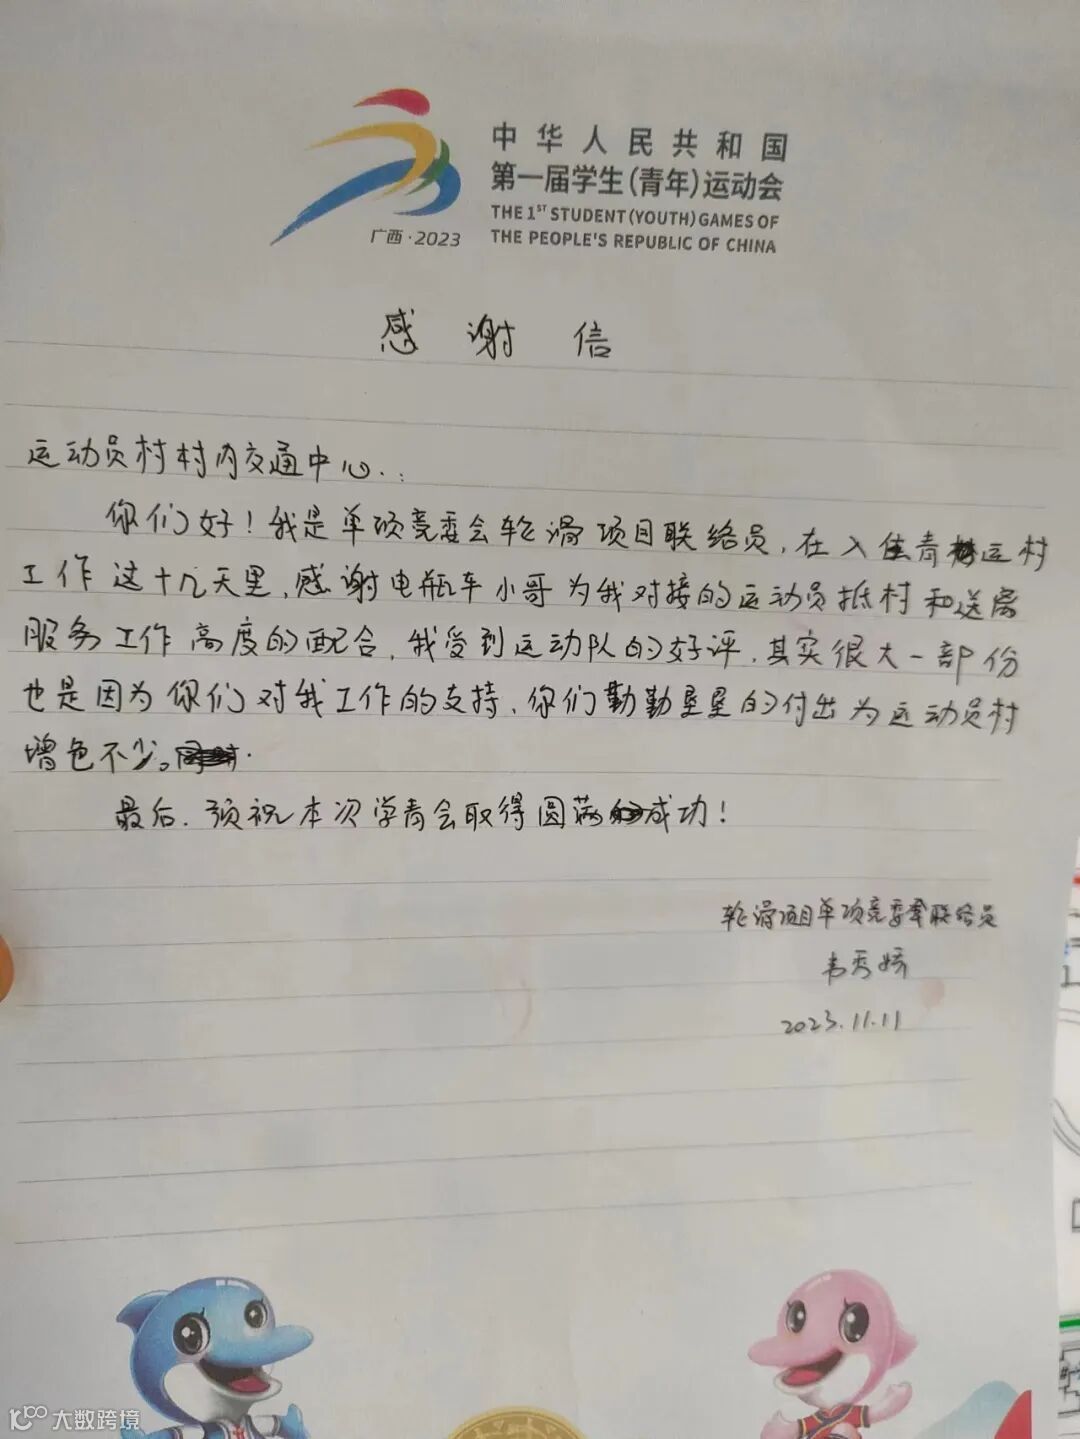 中华人民共和国
第一届学生(青年)运动会
THE 1ST STUDENT (YOUTH) GAMES OF
THE PEOPLE'S REPUBLIC OF CHINA
广西·2023
感谢信
运动员村村内交通中心:
你们好!我是单项竞委会轮滑项目联络员,在入住青运村
工作这十几天里,感谢电瓶车小哥为我对接的运动员抵村和送离
服务工作高度的配合,我受到运动队的好评,其实很大一部份
也是因为你们对我工作的支持,你们勤勤垦垦的付出为运动员村
增色不少。
最后,预祝本次学青会取得圆满成功!
轮滑项目单项竞委会联络员
韦秀娇
2023.11.11
大数跨境